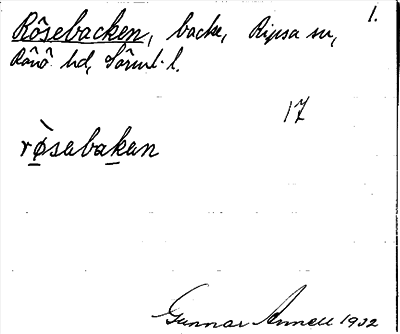 1.
Rôsebacken, backe, Ripsa sn,
Rönö hd, Sörml. l.
17
rø̀sebakan
Gunnar Annell 1932